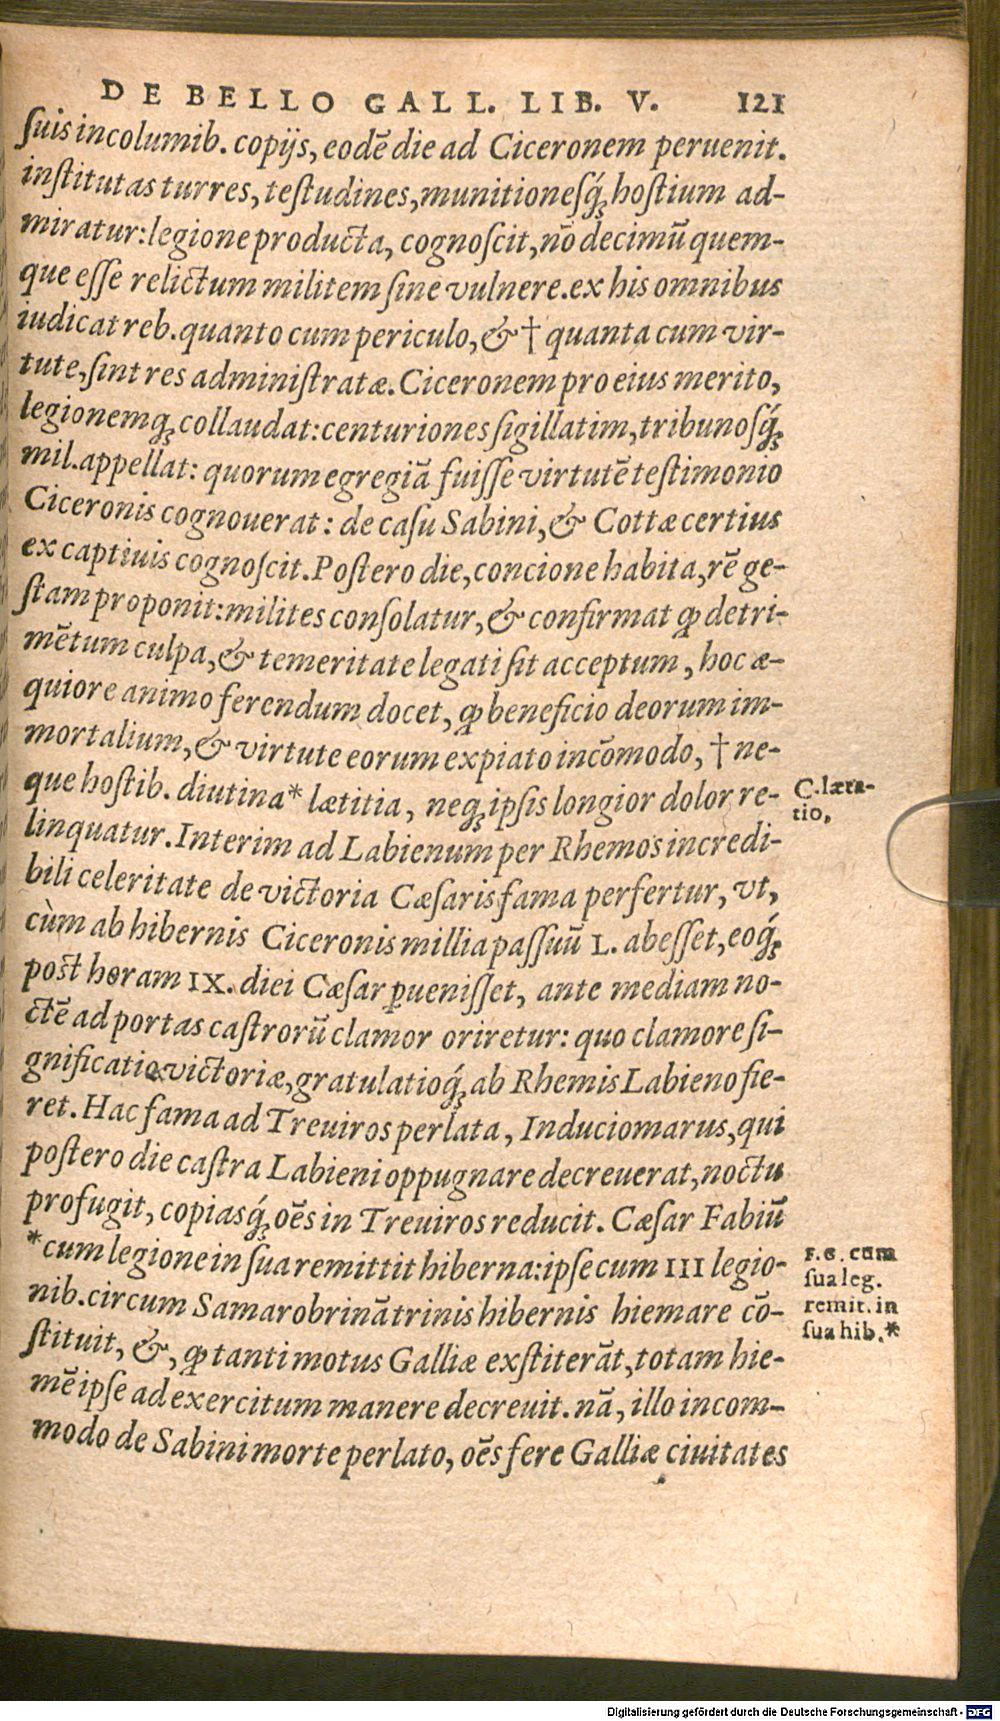 DE BELLO GALL. LIB. V. 121
ſuis incolumib. copijs, eodē die ad Ciceronem peruenit.
inſtitutas turres, teſtudines, munitioneſq́; hoſtium ad-
miratur: legione producta, cognoſcit, nō decimū quem-
que eſſe relictum militem ſine vulnere. ex his omnibus
iudicat reb. quanto cum periculo, & † quanta cum vir-
tute, ſint res adminiſtratæ. Ciceronem pro eius merito,
legionemq; collaudat: centuriones ſigillatim, tribunoſq́;
mil. appellat: quorum egregiā fuiſſe virtutē teſtimonio
Ciceronis cognouerat: de caſu Sabini, & Cottæ certius
ex captiuis cognoſcit. Poſtero die, concione habita, rē ge-
ſtam proponit: milites conſolatur, & confirmat ꝙ detri-
mētum culpa, & temeritate legati ſit acceptum, hoc æ-
quiore animo ferendum docet, ꝙ beneficio deorum im-
mortalium, & virtute eorum expiato incōmodo, † ne-
que hoſtib. diutina* lætitia, neq; ipſis longior dolor re-
C. læta-
tio,
linquatur. Interim ad Labienum per Rhemos incredi-
bili celeritate de victoria Cæſaris fama perfertur, vt,
cùm ab hibernis Ciceronis millia paſſuū L. abeſſet, eoq́;
poſt horam IX. diei Cæſar ꝑueniſſet, ante mediam no-
ctē ad portas caſtrorū clamor oriretur: quo clamore ſi-
gnificatio victoriæ, gratulatioq́; ab Rhemis Labieno fie-
ret. Hac fama ad Treuiros perlata, Induciomarus, qui
poſtero die caſtra Labieni oppugnare decreuerat, noctu
profugit, copiasq́; oēs in Treuiros reducit. Cæſar Fabiū
*cum legione in ſua remittit hiberna: ipſe cum III legio-
F. G. cum
ſua leg.
remit. in
ſua hib.*
nib. circum Samarobrinā trinis hibernis hiemare cō-
ſtituit, &, ꝙ tanti motus Galliæ exſtiterāt, totam hie-
mē ipſe ad exercitum manere decreuit. nā, illo incom-
modo de Sabini morte perlato, oēs fere Galliæ ciuitates
Digitalisierung gefördert durch die Deutsche Forschungsgemeinschaft - DFG